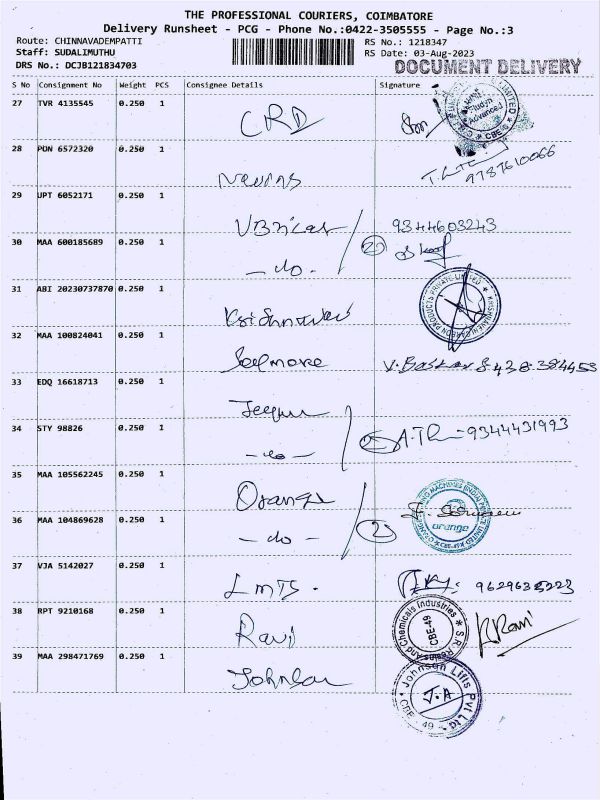 THE PROFESSIONAL COURIERS, COIMBATORE
Delivery Runsheet - PCG - Phone No.:0422-3505555 - Page No.:3
Route: CHINNAVADEMPATTI RS No.: 1218347
Staff: SUDALIMUTHU RS Date: 03-Aug-2023
DRS No.: DCJB121834703 DOCUMENT DELIVERY
S No Consignment No Weight PCS Consignee Details Signature
27 TVR 4135545 0.250 1 CRD
28 PDN 6572320 0.250 1
9787610066
29 UPT 6052171 0.250 1 9344603243
30 MAA 600185689 0.250 1 - do - 2
31 ABI 20230737870 0.250 1
32 MAA 100824041 0.250 1 Seemore V. Baskar 8438384453
33 EDQ 16618713 0.250 1
34 STY 98826 0.250 1 - do - 2 9344431993
35 MAA 105562245 0.250 1 Orange
orange
36 MAA 104869628 0.250 1 - do - 2
37 VJA 5142027 0.250 1 LMTS.
38 RPT 9210168 0.250 1 Ravi R Ravi
And Chemicals Industries
CBE-49
39 MAA 298471769 0.250 1 Johnson
Johnson Lifts Pvt Ltd
J.A
CBE - 49